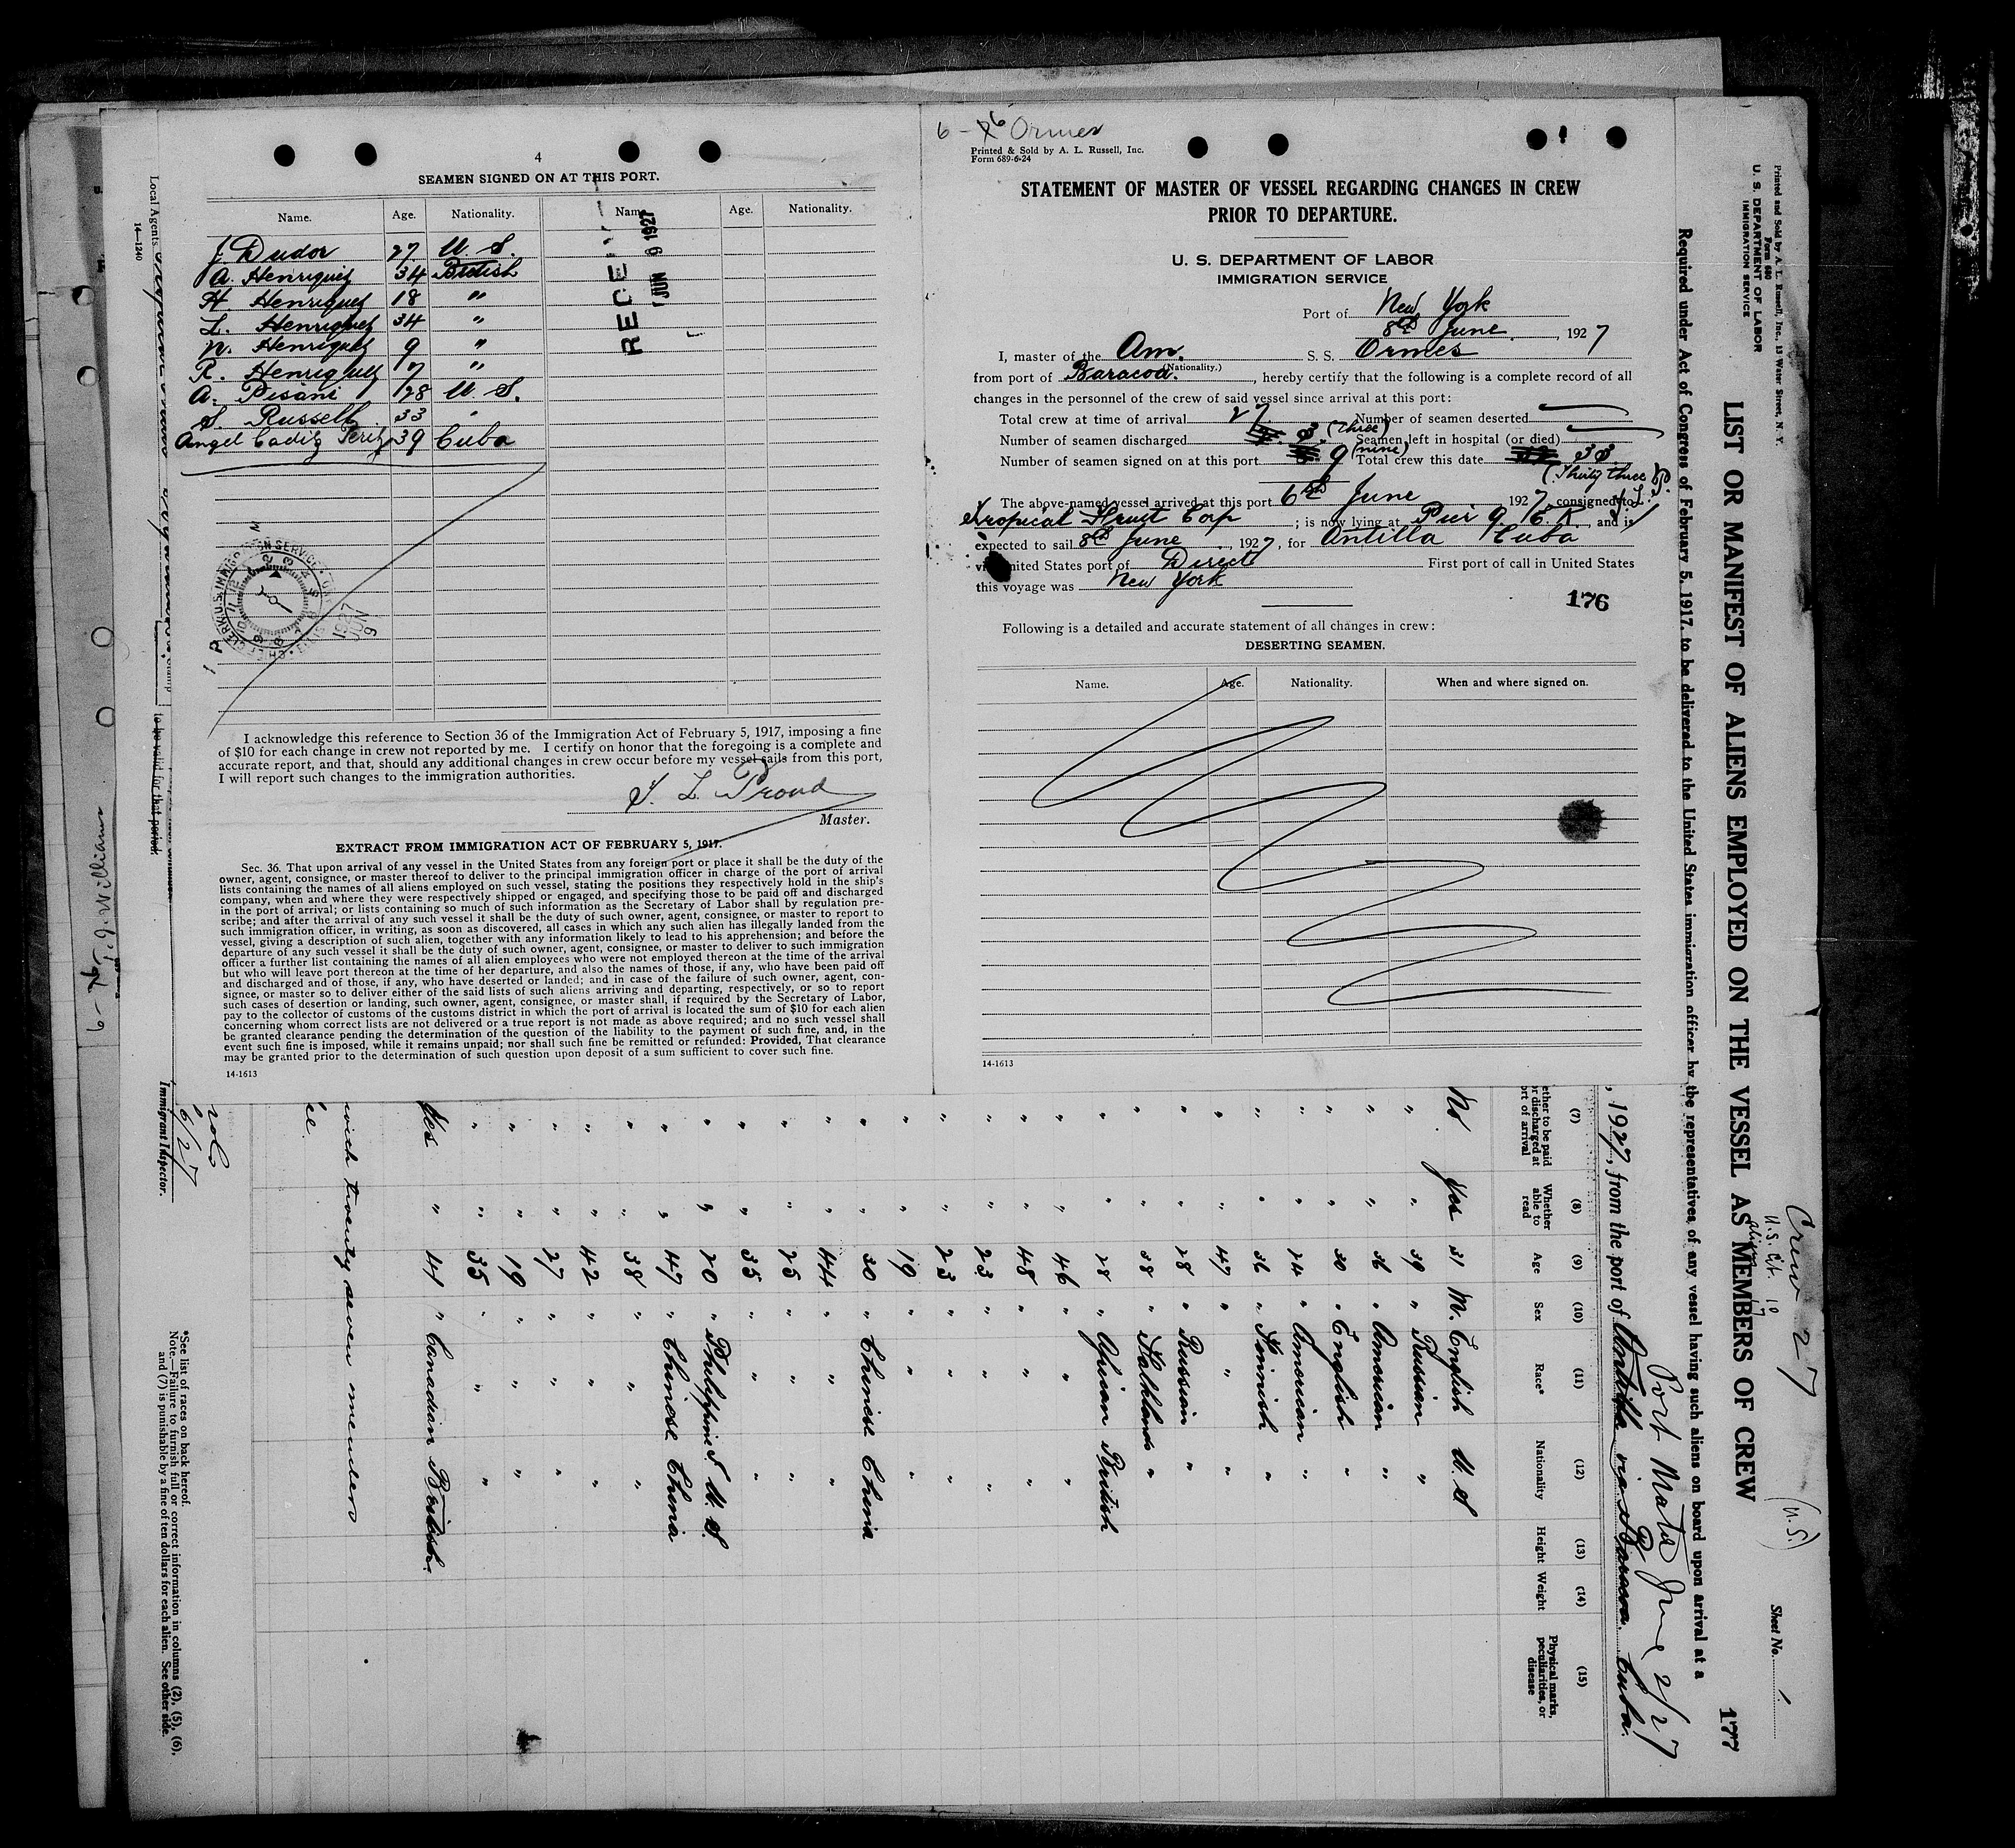 4
SEAMEN SIGNED ON AT THIS PORT.
Name. Age. Nationality. Name. Age. Nationality.
J. Dudor 27 U. S.
A. Henriquez 34 British
H. Henriquez 18 "
L. Henriquez 34 "
N. Henriquez 9 "
R. Henriquez 17 "
A. Pisani 28 U. S.
S. Russell 33 "
Angel Cadiz Perez 39 Cuba
RECEIV
JUN 9 1927
1927
JUN
9
I acknowledge this reference to Section 36 of the Immigration Act of February 5, 1917, imposing a fine
of $10 for each change in crew not reported by me. I certify on honor that the foregoing is a complete and
accurate report, and that, should any additional changes in crew occur before my vessel sails from this port,
I will report such changes to the immigration authorities.
L. Proud
Master.
EXTRACT FROM IMMIGRATION ACT OF FEBRUARY 5, 1917.
Sec. 36. That upon arrival of any vessel in the United States from any foreign port or place it shall be the duty of the
owner, agent, consignee, or master thereof to deliver to the principal immigration officer in charge of the port of arrival
lists containing the names of all aliens employed on such vessel, stating the positions they respectively hold in the ship's
company, when and where they were respectively shipped or engaged, and specifying those to be paid off and discharged
in the port of arrival; or lists containing so much of such information as the Secretary of Labor shall by regulation pre-
scribe; and after the arrival of any such vessel it shall be the duty of such owner, agent, consignee, or master to report to
such immigration officer, in writing, as soon as discovered, all cases in which any such alien has illegally landed from the
vessel, giving a description of such alien, together with any information likely to lead to his apprehension; and before the
departure of any such vessel it shall be the duty of such owner, agent, consignee, or master to deliver to such immigration
officer a further list containing the names of all alien employees who were not employed thereon at the time of the arrival
but who will leave port thereon at the time of her departure, and also the names of those, if any, who have been paid off
and discharged and of those, if any, who have deserted or landed; and in case of the failure of such owner, agent, con-
signee, or master so to deliver either of the said lists of such aliens arriving and departing, respectively, or so to report
such cases of desertion or landing, such owner, agent, consignee, or master shall, if required by the Secretary of Labor,
pay to the collector of customs of the customs district in which the port of arrival is located the sum of $10 for each alien
concerning whom correct lists are not delivered or a true report is not made as above required; and no such vessel shall
be granted clearance pending the determination of the question of the liability to the payment of such fine, and, in the
event such fine is imposed, while it remains unpaid; nor shall such fine be remitted or refunded: Provided, That clearance
may be granted prior to the determination of such question upon deposit of a sum sufficient to cover such fine.
14-1613
6 - 6 Ormes
Printed & Sold by A. L. Russell, Inc.
Form 689-6-24
STATEMENT OF MASTER OF VESSEL REGARDING CHANGES IN CREW
PRIOR TO DEPARTURE.
U. S. DEPARTMENT OF LABOR
IMMIGRATION SERVICE
Port of New York
8th June, 1927
I, master of the Am. S. S. Ormes
(Nationality.)
from port of Baracoa, hereby certify that the following is a complete record of all
changes in the personnel of the crew of said vessel since arrival at this port:
Total crew at time of arrival 27 Number of seamen deserted
Number of seamen discharged 3 (three) Seamen left in hospital (or died)
Number of seamen signed on at this port 9 (nine) Total crew this date 33
(Thirty three)
The above-named vessel arrived at this port 6th June 1927, consigned to
Tropical Fruit Corp; is now lying at Pier 9 E. R., and is
expected to sail 8th June, 1927, for Antilla Cuba
via United States port of Direct First port of call in United States
this voyage was New York
176
Following is a detailed and accurate statement of all changes in crew:
DESERTING SEAMEN.
Name. Age. Nationality. When and where signed on.
14-1613
Printed and Sold by A. L. Russell, Inc., 13 Water Street, N. Y.
Form 680
U. S. DEPARTMENT OF LABOR
IMMIGRATION SERVICE
Crew 27
U.S. Cit. 10
alien 17
(U.S.)
Sheet No. 1
177
LIST OR MANIFEST OF ALIENS EMPLOYED ON THE VESSEL AS MEMBERS OF CREW
Required under Act of Congress of February 5, 1917, to be delivered to the United States immigration officer by the representatives of any vessel having such aliens on board upon arrival at a
Port Mata June 2/27
, 1927, from the port of Antilla via Baracoa Cuba.
(7) (8) (9) (10) (11) (12) (13) (14) (15)
ether to be paid or discharged at ort of arrival
Whether able to read
Age
Sex
Race*
Nationality
Height
Weight
Physical marks, peculiarities, or disease
No Yes 31 M. English U. S
" " 39 " Russian "
" " 36 " American "
" " 30 " English "
" " 24 " American "
" " 36 " Finnish "
" " 47 " " "
" " 28 " Russian "
" " 38 " "
" " 28 " African British
" " 46 " " "
" " 48 " " "
" " 23 " " "
" " 23 " " "
" " 19 " " "
" " 30 " Chinese China
" " 44 " " "
" " 25 " " "
" " 35 " " "
" " 20 " Philippine U. S.
" " 47 " Chinese China
" " 38 " " "
" " 42 " " "
" " 27 " " "
" " 19 " " "
" " 35 " " "
Yes " 41 " Canadian British.
with twenty seven member
6/27
Immigrant Inspector.
*See list of races on back hereof.
Note.—Failure to furnish full or correct information in columns (2), (5), (6),
and (7) is punishable by a fine of ten dollars for each alien. See other side.
Local Agents
14—1240
to be valid for that period.
6- J. Williams